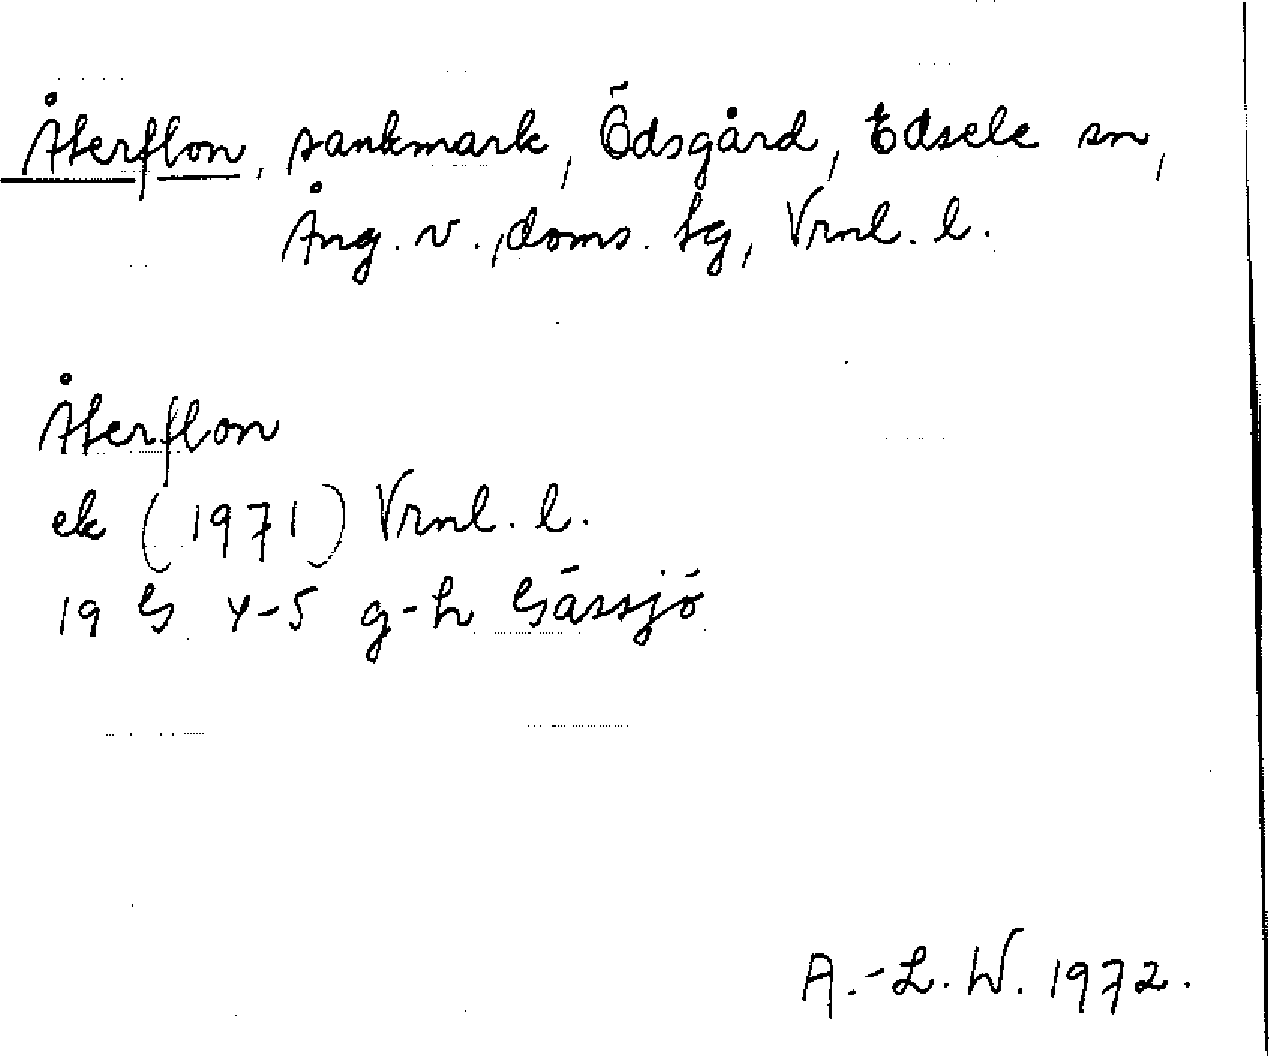 Återflon, sankmark, Ödsgård, Edsele sn,
Ång. v., doms. tg, Vrnl. l.
Återflon
ek (1971) Vrnl. l.
19 G 4-5 g-h Gässjö
A.-L. W. 1972.